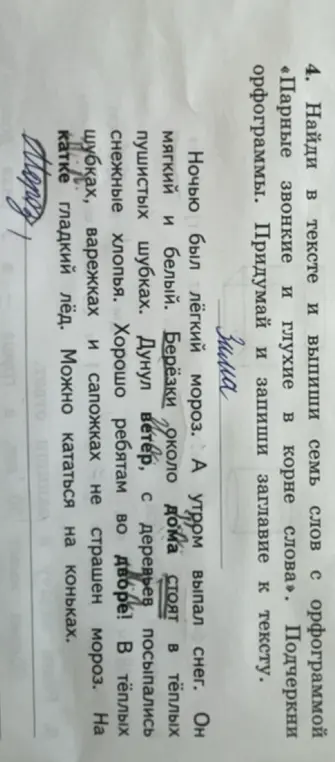 4. Найди в тексте и выпиши семь слов с орфограммой
«Парные звонкие и глухие в корне слова». Подчеркни
орфограммы. Придумай и запиши заглавие к тексту.
Зима
Ночью был лёгкий мороз. А утром выпал снег. Он
мягкий и белый. Берёзки около дома стоят в тёплых
пушистых шубках. Дунул ветер, с деревьев посыпались
снежные хлопья. Хорошо ребятам во дворе! В тёплых
шубках, варежках и сапожках не страшен мороз. На
катке гладкий лёд. Можно кататься на коньках.